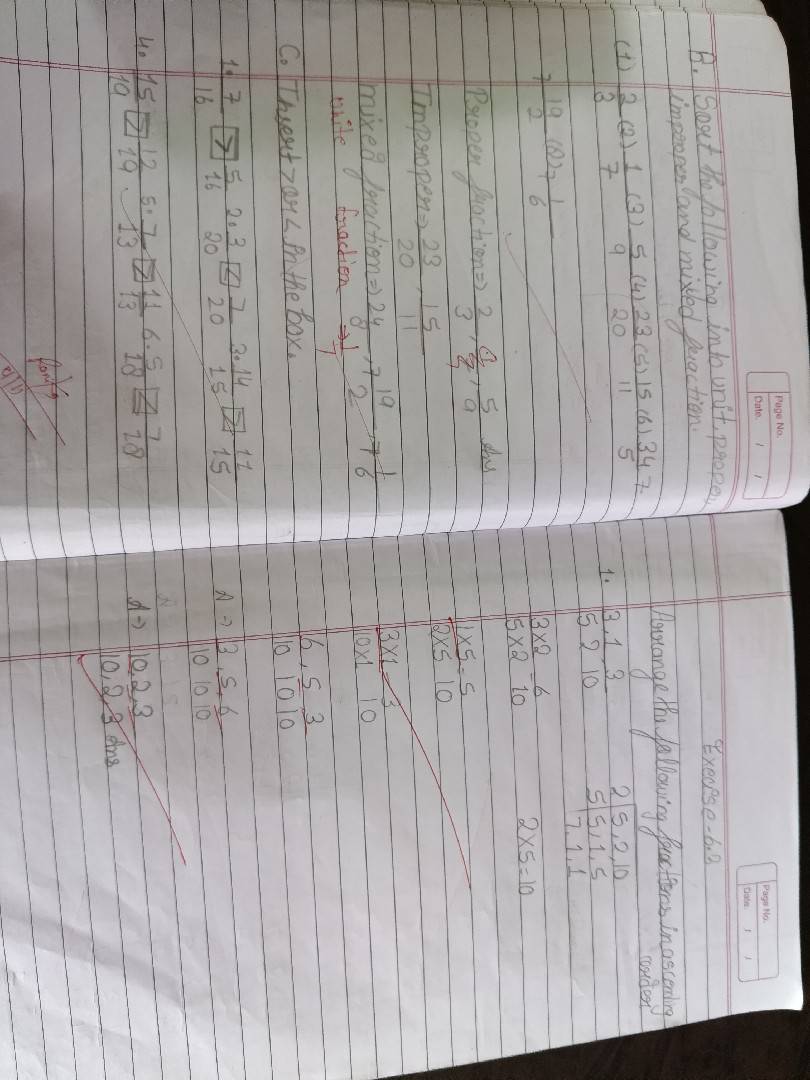 Page No.
Date. / /
B. Sort the following into unit, proper,
improper and mixed fraction.
(1) 2/3 (2) 1/7 (3) 5/9 (4) 23/20 (5) 15/11 (6) 34/5 7.
7 19/2 (8) 7 1/6
Proper fraction => 2/3, 5/9 Ans
Improper => 23/20, 15/11
mixed fraction => 24/8, 7 19/2, 7 1/6
unite fraction => 1/7
C. Insert > or < in the box.
1. 7/16 > 5/16 2. 3/20 < 7/20 3. 14/15 > 11/15
4. 15/19 > 12/19 5. 7/13 < 11/13 6. 5/18 < 7/18
Page No.
Date. / /
Exercise-6.2
Arrange the following fractions in ascending
order
1. 3/5, 1/2, 3/10 2 | 5, 2, 10
5 | 5, 1, 5
1, 1, 1
3x2/5x2 = 6/10 2x5=10
1x5/2x5 = 5/10
3x1/10x1 = 3/10
6/10, 5/10, 3/10
A => 3/10, 5/10, 6/10
A => 10, 2, 3
10, 2, 3 Ans